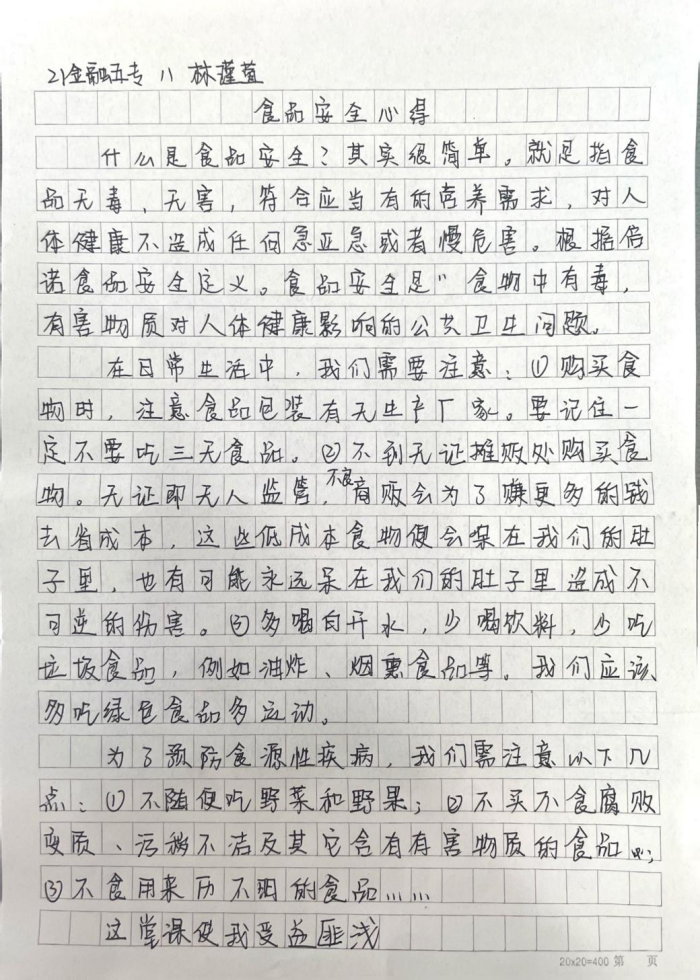 21金融五专 11 林谨萱
食品安全心得
什么是食品安全？其实很简单。就是指食
品无毒、无害，符合应当有的营养需求，对人
体健康不造成任何急亚急或者慢危害。根据倍
诺食品安全定义。食品安全是"食物中有毒，
有害物质对人体健康影响的公共卫生问题。
在日常生活中，我们需要注意：①购买食
物时，注意食品包装有无生产厂家。要记住一
定不要吃三无食品。②不到无证摊贩处购买食
物。无证即无人监管，不良商贩会为了赚更多的钱
去省成本，这些低成本食物便会呆在我们的肚
子里，也有可能永远呆在我们的肚子里造成不
可逆的伤害。③多喝白开水，少喝饮料，少吃
垃圾食品，例如油炸、烟熏食品等。我们应该
多吃绿色食品多运动。
为了预防食源性疾病，我们需注意以下几
点：①不随便吃野菜和野果；②不买不食腐败
变质、污秽不洁及其它含有有害物质的食品……；
③不食用来历不明的食品……
这堂课使我受益匪浅
20x20=400 第 页